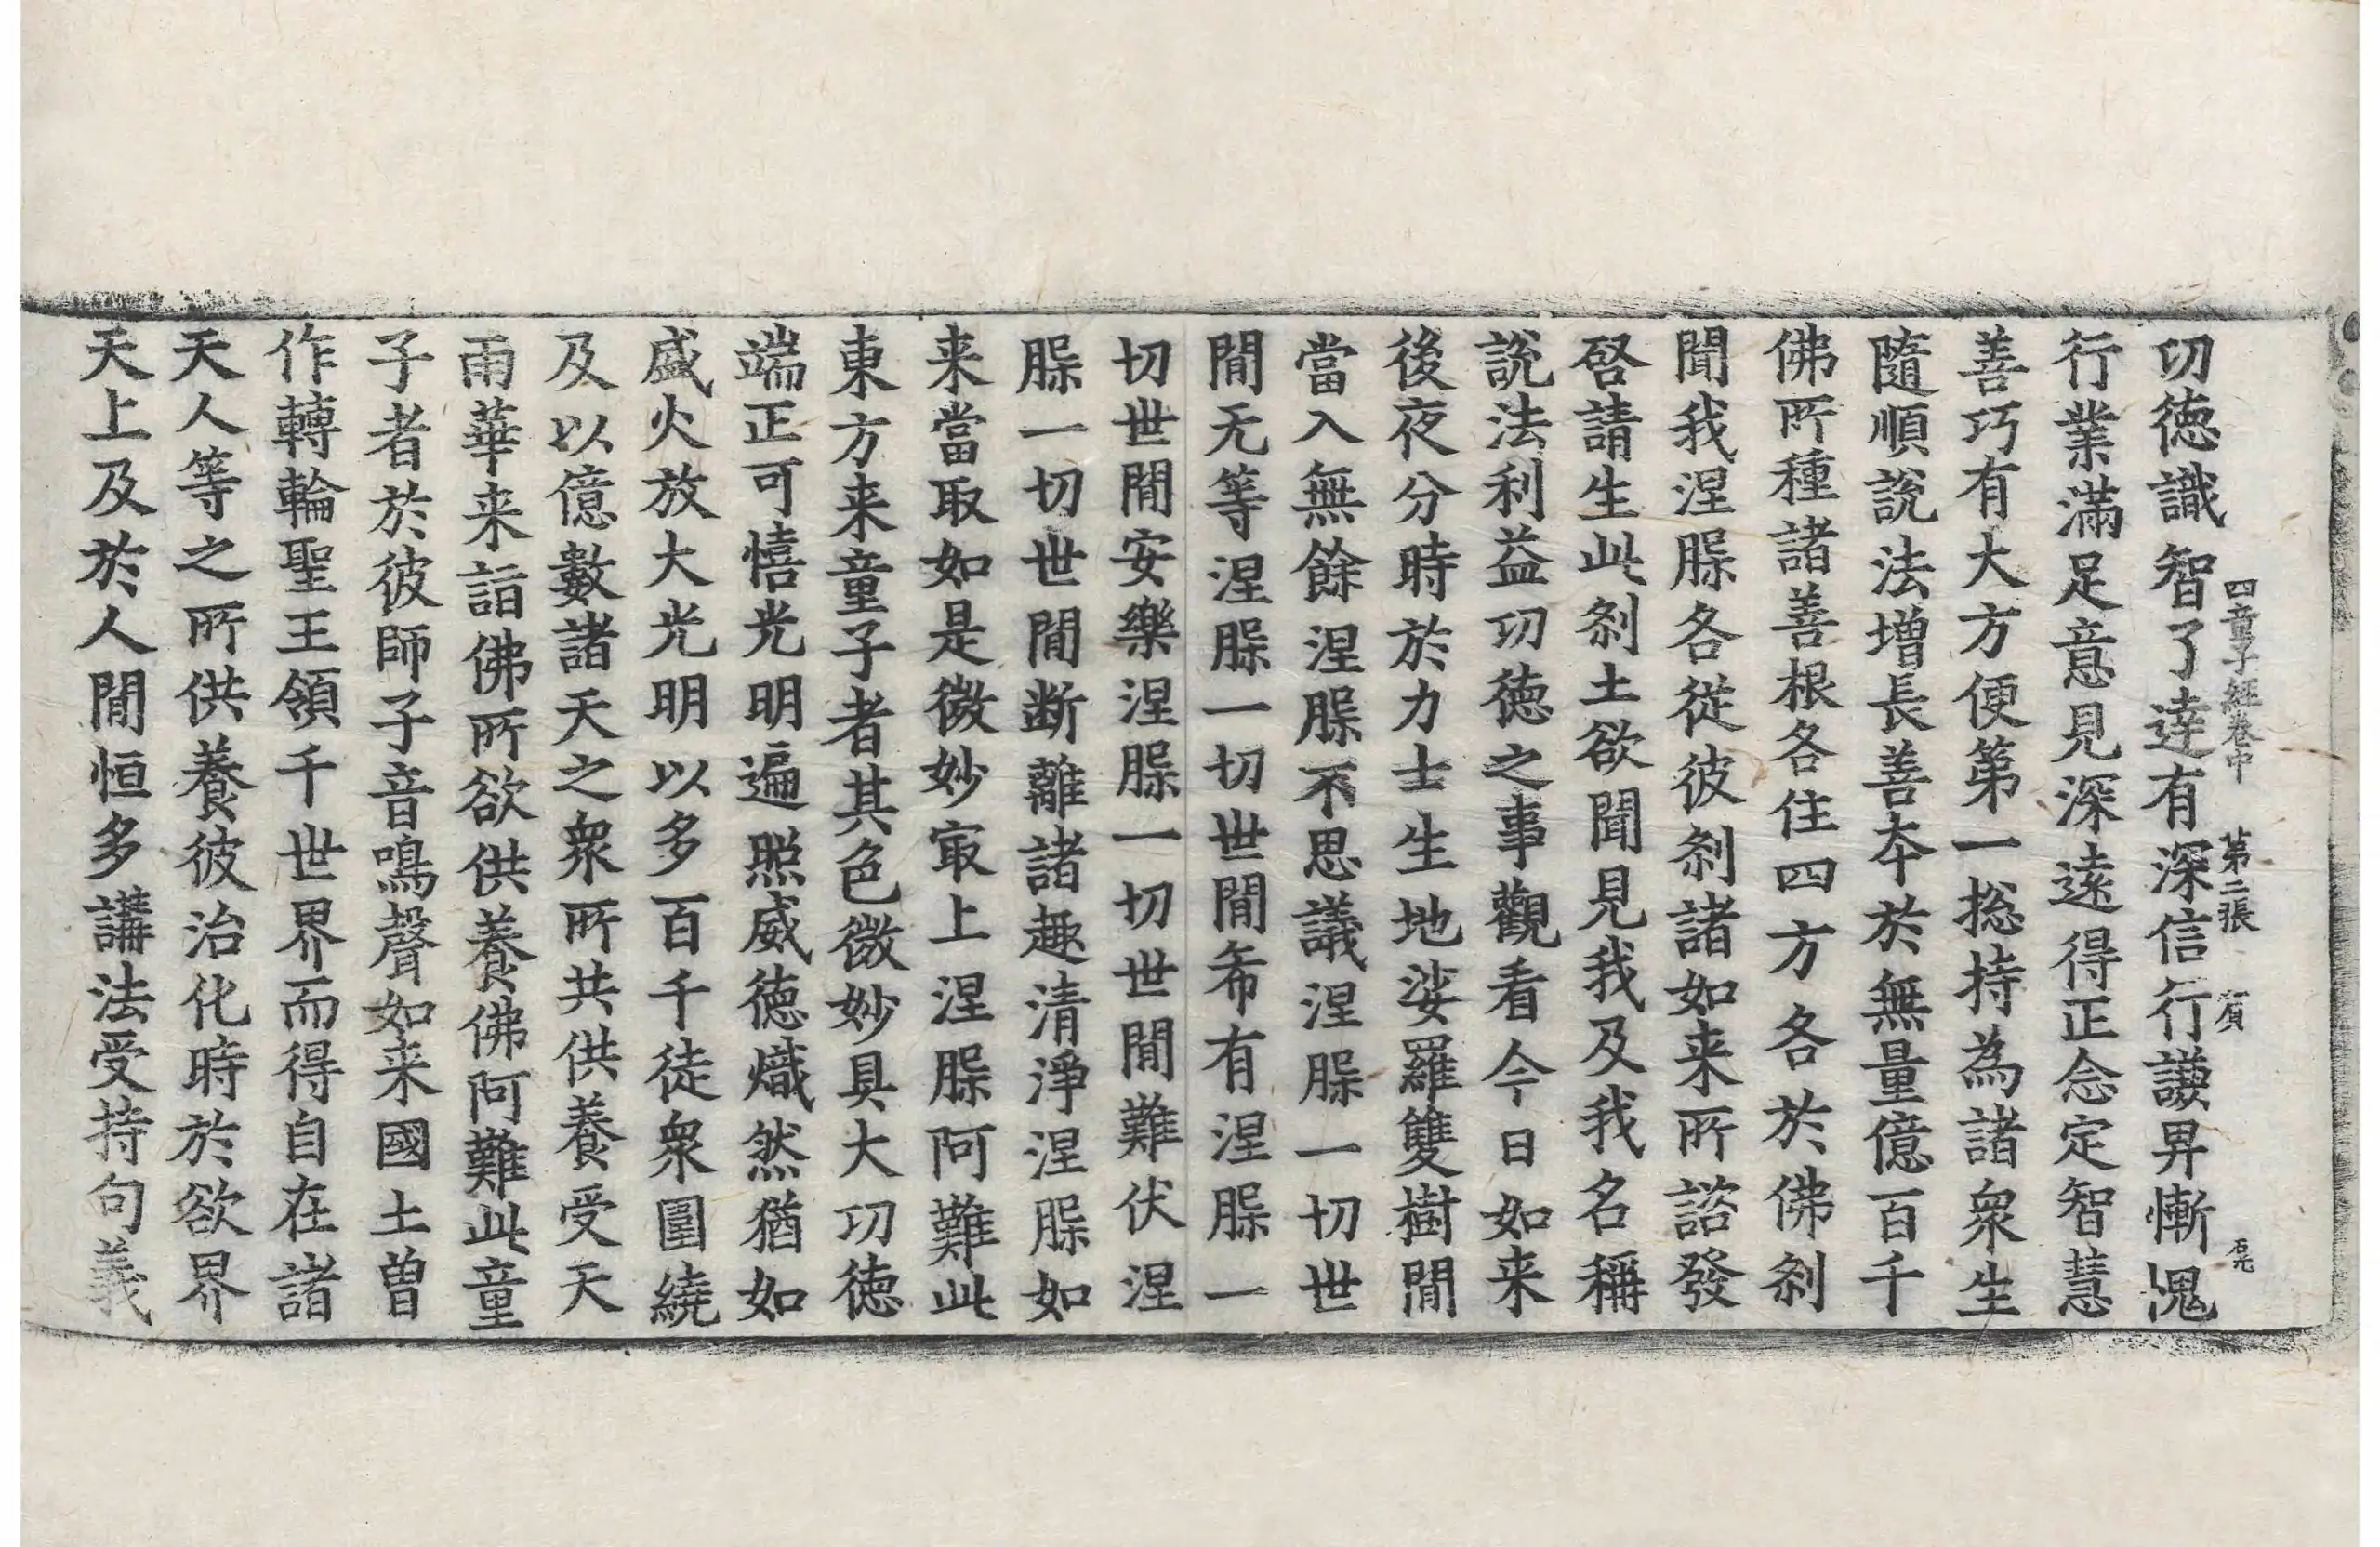 四童子經卷中　第二張　賓
功徳識智了達有深信行謙昇慚愧
行業滿足意見深逺得正念定智慧
善巧有大方便第一捴持為諸衆生
隨順說法增長善夲於無量億百千
佛所種諸善根各住四方各於佛刹
聞我涅槃各從彼刹諸如来所諮發
啓請生此刹土欲聞見我及我名稱
說法利益功徳之事觀看今日如来
後夜分時於力士生地娑羅雙樹閒
當入無餘涅槃不思議涅槃一切世
閒无等涅槃一切世閒希有涅槃一
切世閒安樂涅槃一切世閒難伏涅
槃一切世閒断離諸趣清淨涅槃如
来當取如是微妙㝡上涅槃阿難此
東方来童子者其色微妙具大功徳
端正可憘光明遍照威徳熾然猶如
盛火放大光明以多百千徒衆圍繞
及以億數諸天之衆所共供養受天
雨華来詣佛所欲供養佛阿難此童
子者於彼師子音鳴聲如来國土曽
作轉輪聖王領千世界而得自在諸
天人等之所供養彼治化時於欲界
天上及於人閒恒多講法受持句義